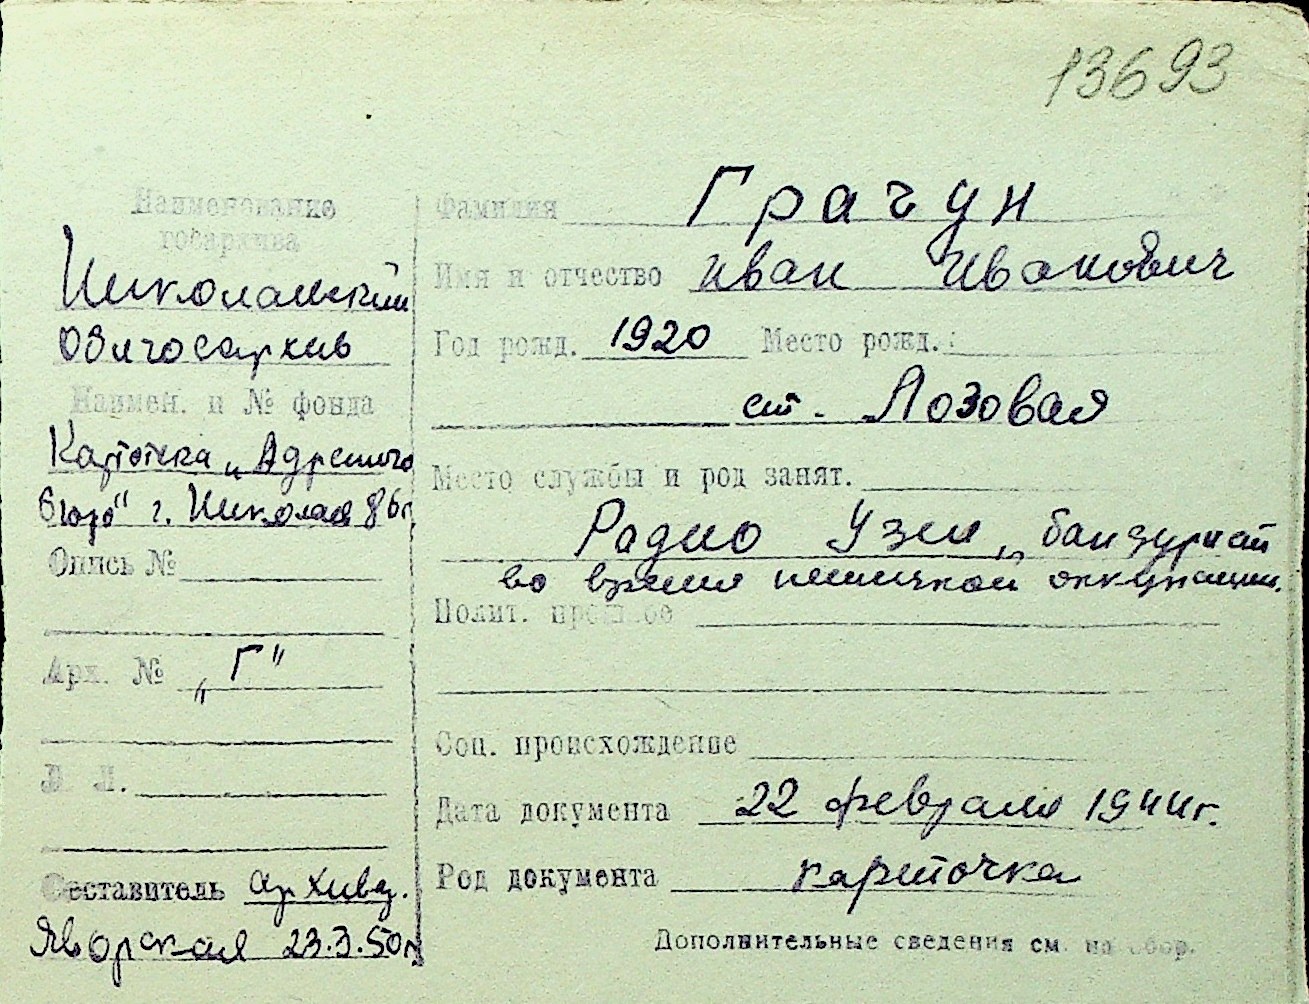 13693
Наименование
госархива
Николаевский
облгосархив
Наимен. и № фонда
Картотека „Адресного
бюро" г. Николаев
Опись №
Арх. № „Г"
Л. Л.
Составитель архив.
Яворская 23.3.50г
Фамилия Грачун
Имя и отчество Иван Иванович
Год рожд. 1920 Место рожд.:
ст. Лозовая
Место службы и род занят.
Радио Узел, бандурист
во время немецкой оккупации.
Полит. прошлое
Соц. происхождение
Дата документа 22 февраля 1944г.
Род документа карточка
Дополнительные сведения см. на обор.